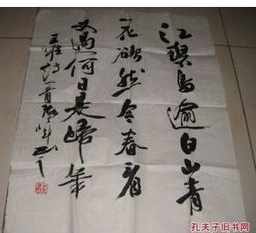 江碧鸟逾白山青
花欲然今春看
又過何日是歸年
孔夫子旧书网